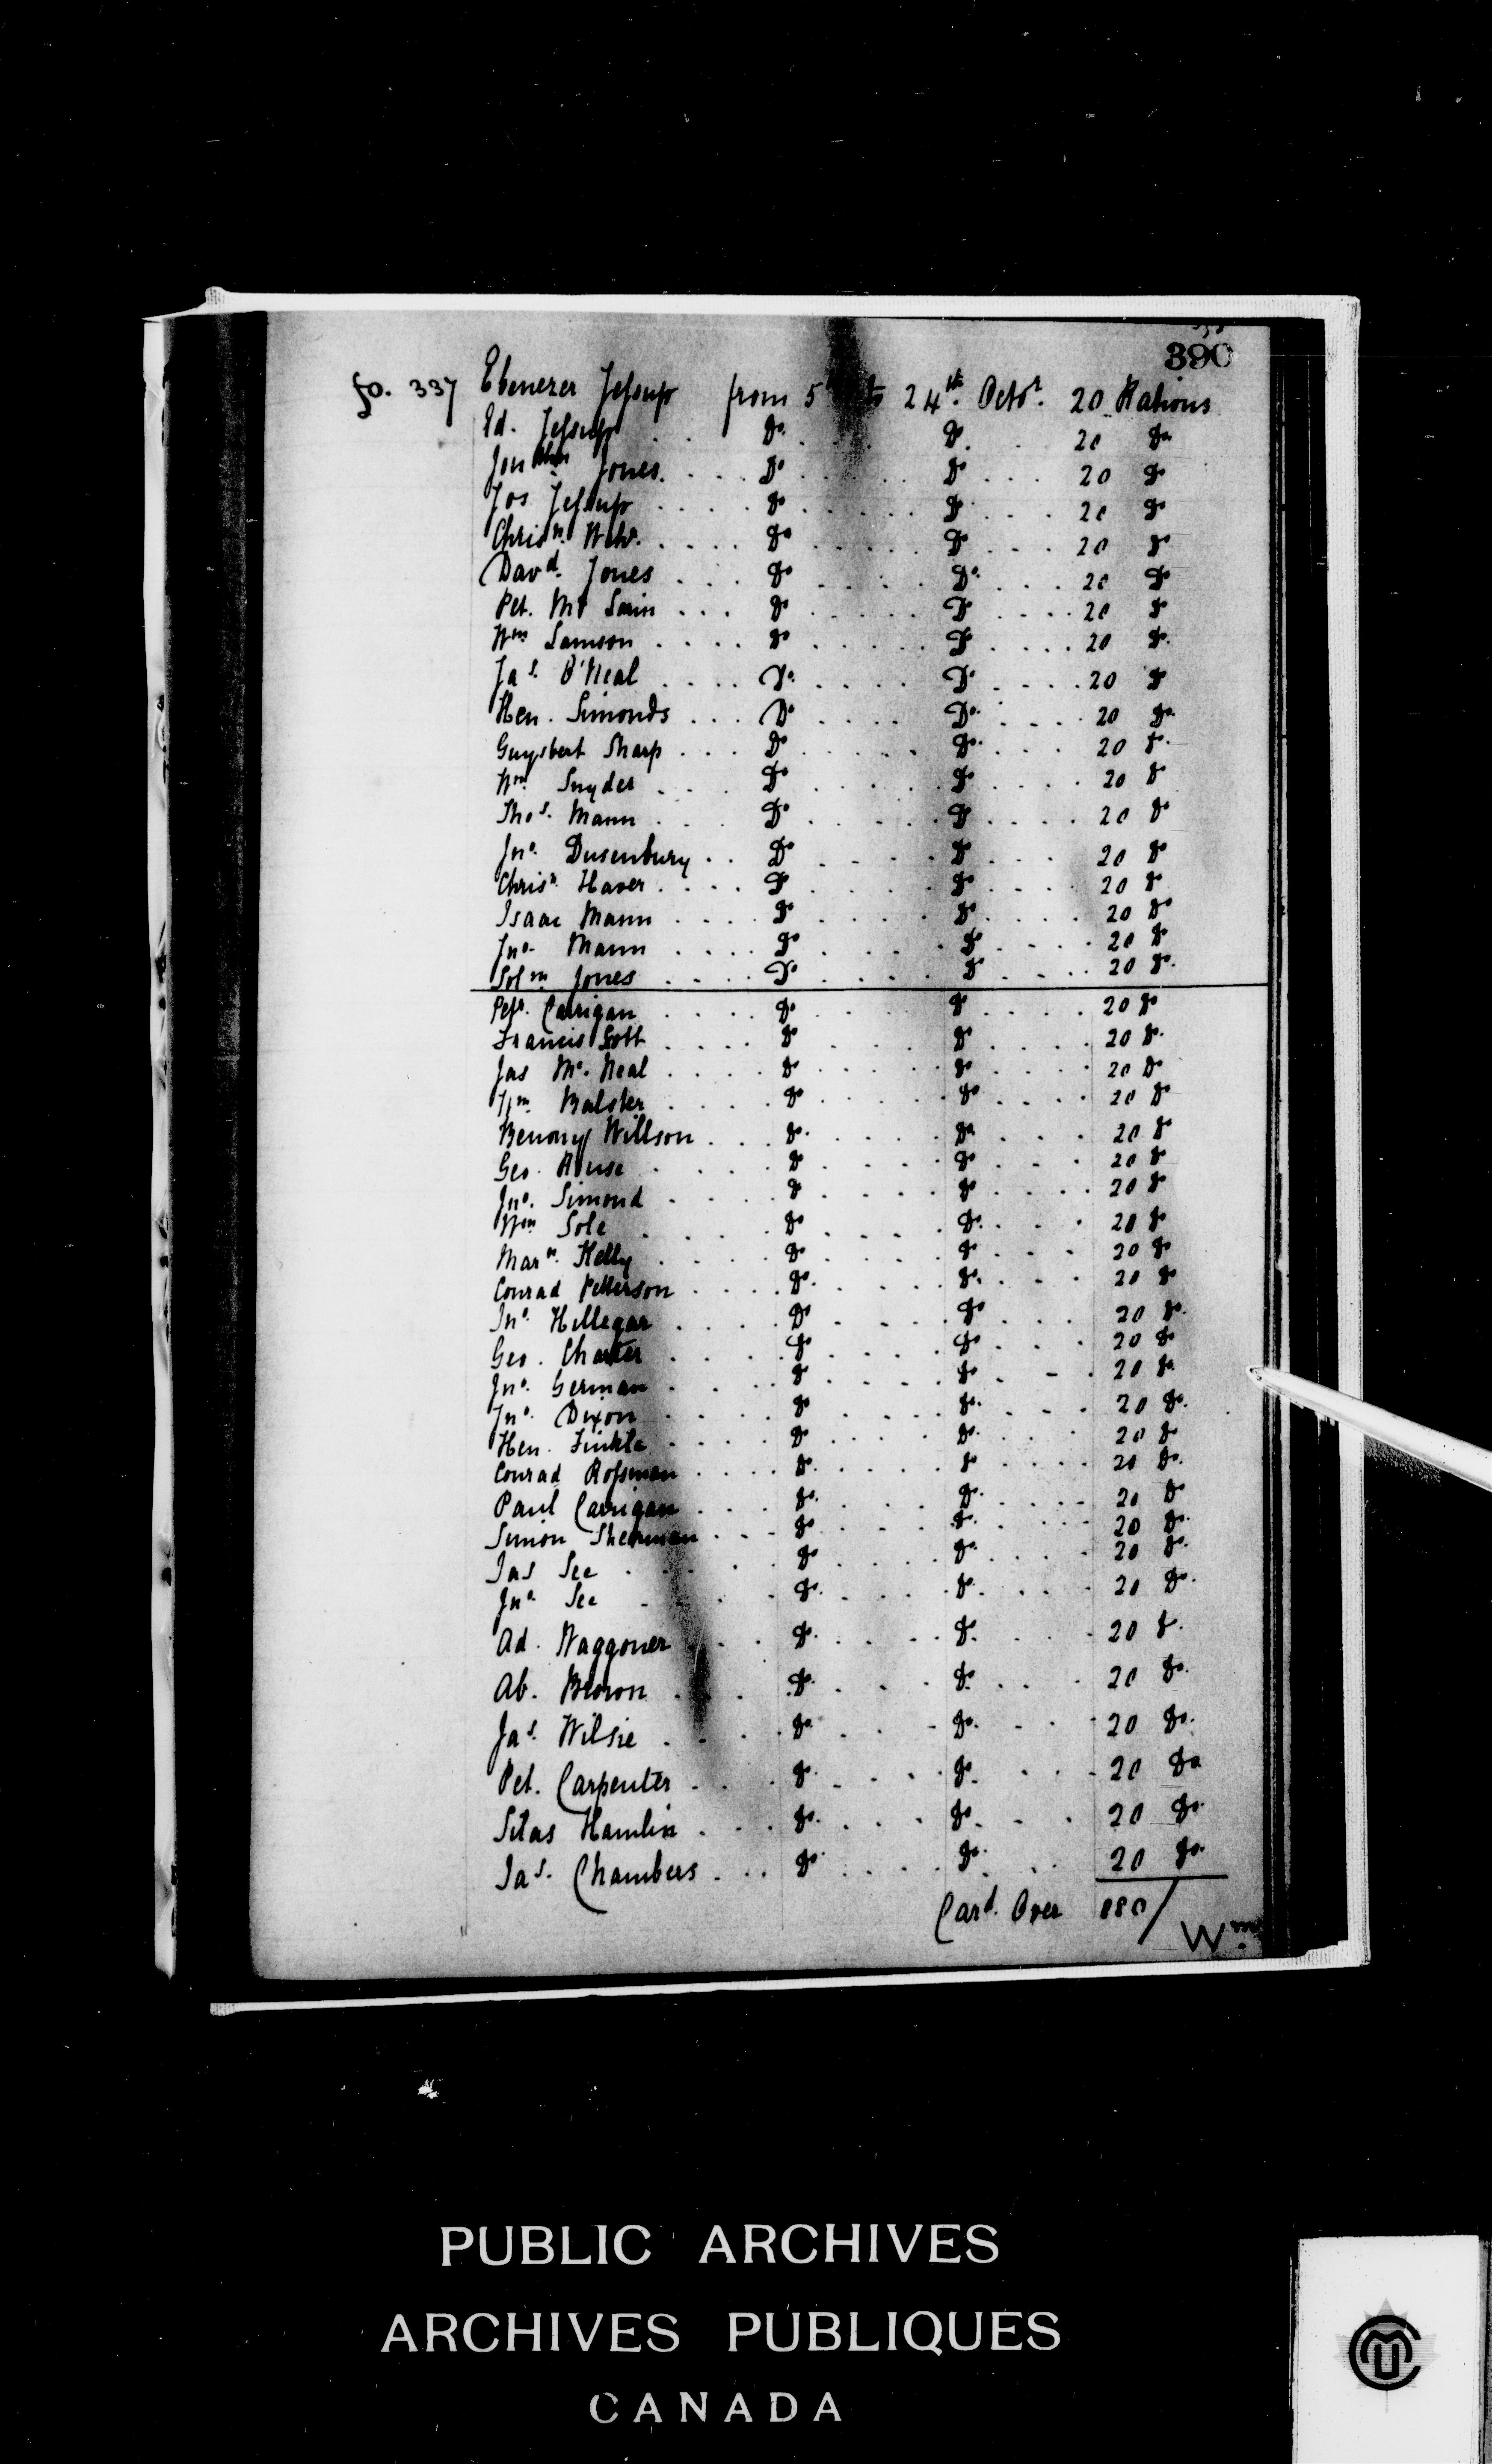 390
fo. 337 Ebenezer Jessup from 5th to 24th. Octr. 20 Rations
Ed. Jessup . . Do. . . Do. . 20 Do.
Jonthn Jones. . . . Do . . . Do . . . 20 Do
Jos Jessup . . . . Do . . . . . Do . . . 20 Do
Chrisn. . . . . Do . . . . . Do . . . 20 Do
Davd. Jones . . . Do . . . . Do. . . . 20 Do
Pet. . . . Do . . . . . Do . . . . 20 Do
Wm Samson . . . . Do . . . . . Do . . . . 20 Do.
Jas. O'Neal . . . . Do. . . . . Do. . . . . 20 Do
Hen. Simonds . . . Do . . . . Do. . . . . 20 Do.
Guysbert Sharp . . . Do . . . . . Do. . . . 20 Do.
Wm Snyder . . . Do . . . . . Do . . . . 20 Do
Thos. Mann . . . Do . . . . . Do . . . . 20 Do
Jno. Dusenbury . . Do . . . . Do . . . 20 Do
Chrisn. Haver . . . . Do . . . . . Do . . . . 20 Do
Isaac Mann . . . . Do . . . . . Do . . . . 20 Do
Jno. Mann . . . . Do . . . . . Do . . . . 20 Do
Solmn Jones . . . . Do . . . . . Do . . . . 20 Do.
Petr. Carrigan . . . . Do . . . . . Do . . . . 20 Do
Francis Scott . . . . Do . . . . . Do . . . . 20 Do.
Jas Mc. Neal . . . . Do . . . . . Do . . . . 20 Do
Wm. Balster . . . . Do . . . . . Do . . . . 20 Do
Benony Willson . . . Do. . . . . . Do. . . . . 20 Do
Geo. Rouse . . . . Do . . . . . Do . . . 20 Do
Jno. Simond . . . . Do . . . . . Do . . . . 20 Do
Wm Sole . . . . Do . . . . Do. . . . 20 Do
Marn. Kelly . . . . Do . . . . . Do . . . 20 Do
Conrad Petterson . . . . Do. . . . . Do. . . . 20 Do
Jno. Hillegar . . . . Do . . . . Do . . . 20 Do.
Geo. Charter . . . . Do . . . . . Do . . . 20 Do
Jno. German . . . . Do . . . . . Do . - . 20 Do.
Jno. Dixon . . . . Do . . . . . Do. . . . 20 Do.
Hen. Finkle . . . . Do . . . . . Do. . . . . 20 Do
Conrad Rossman . . . . Do. . . . . . Do . . . . 20 Do.
Paul Carrigan . . . Do. . . . . Do. . . . . 20 Do
Simon Sherman . . . Do . . . . Do. . . . . 20 Do.
Jas See . . . . Do . . . . Do. . . . . 20 Do.
Jno. See . . . Do. . . . . Do. . . . . 20 Do.
Ad. Waggoner . . . Do. . . . . Do. . . . 20 Do.
Ab. Brown . . . Do. . . . . Do. . . . 20 Do.
Jas. Wilsie . . . . Do. . . . Do. . . . 20 Do.
Pet. Carpenter . . . Do. . . . . Do. . . . 20 Do
Silas Hamlin . . . Do. . . . . Do. . . . 20 Do.
Jas. Chambers . . . Do. . . . . Do. . . . 20 Do.
Card. Over 880/
Wm.
PUBLIC ARCHIVES
ARCHIVES PUBLIQUES
CANADA